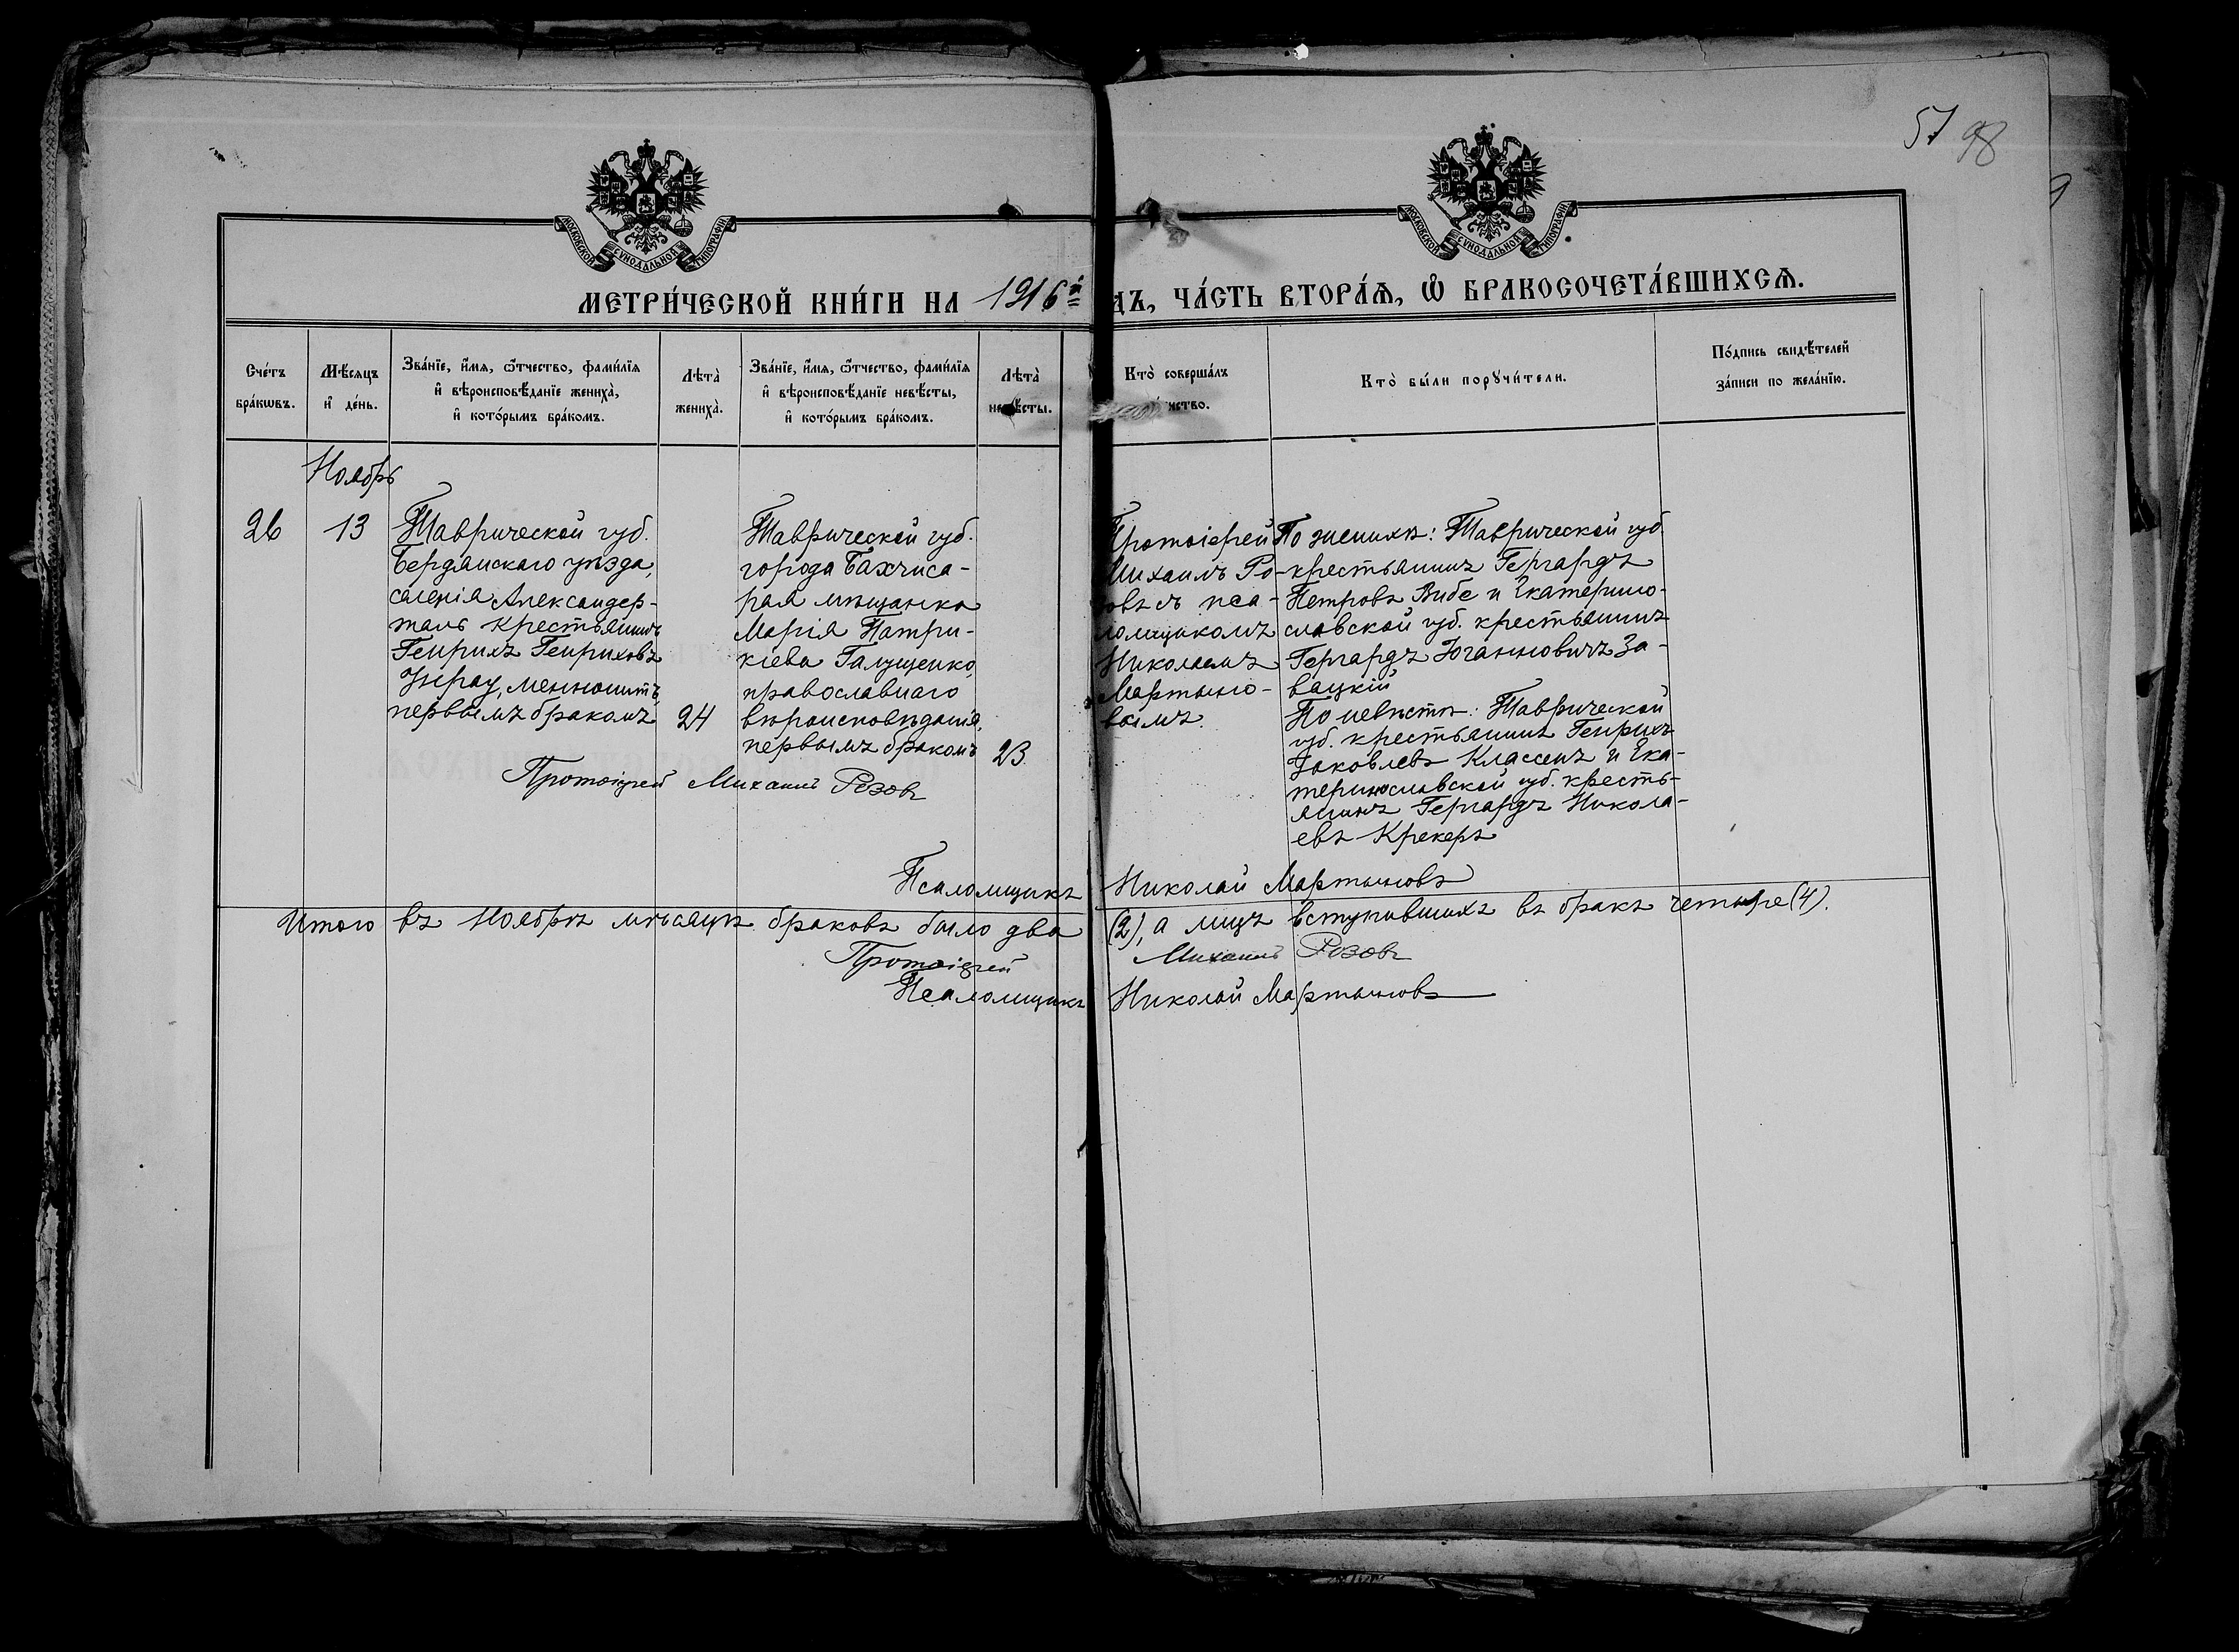 57 98
МОСКОВСКОЙ СѴНОДАЛЬНОЙ ТИПОГРАФІИ
МОСКОВСКОЙ СѴНОДАЛЬНОЙ ТИПОГРАФІИ
МЕТРИ́ЧЕСКОЙ КНИ́ГИ НА 1916й
ДЪ, ЧА́СТЬ ВТОРА́Ѧ, Ѽ БРАКОСОЧЕТА́ВШИХСѦ.
Сче́тъ
бра́кѡвъ.
Мѣ́сяцъ
и҆ де́нь.
Зва́нїе, и҆́мѧ, ѻ҆́тчество, фами́лїѧ
и҆ вѣроисповѣ́данїе жениха̀,
и҆ кото́рымъ бра́комъ.
Лѣта̀
жениха̀.
Зва́нїе, и҆́мѧ, ѻ҆́тчество, фами́лїѧ
и҆ вѣроисповѣ́данїе невѣ́сты,
и҆ кото́рымъ бра́комъ.
Лѣта̀
невѣ́сты.
Кто̀ соверша́лъ
Кто̀ бы́ли порꙋчи́тели.
По́дпись свидѣ́телей
за́писи по жела́нїю.
Ноябрь
26
13
Таврической губ.
Бердянскаго уѣзда,
селенія Александер-
таль крестьянинъ
Генрихъ Генриховъ
Унрау, меннонитъ,
первымъ бракомъ
24
Таврической губ.
города Бахчиса-
рая мѣщанка
Марія Патри-
кіева Галущенко,
православнаго
вѣроисповѣданія,
первымъ бракомъ
23
Протоіерей
Михаилъ Ро-
овъ съ пса-
ломщикомъ
Николаемъ
Мартыно-
вымъ.
По женихѣ: Таврической губ.
крестьянинъ Гергардъ
Петровъ Вибе и Екатерино-
славской губ. крестьянинъ
Гергардъ Іоганновичъ За-
вацкій
По невѣстѣ: Таврической
губ. крестьянинъ Генрихъ
Іаковлевъ Классенъ и Ека-
теринославской губ. кресть-
янинъ Гергардъ Никола-
евъ Крекеръ
Протоіерей Михаилъ Розовъ
Псаломщикъ Николай Мартыновъ
Итого въ Ноябрѣ мѣсяцѣ браковъ было два (2), а лицъ вступившихъ въ бракъ четыре (4).
Протоіерей Михаилъ Розовъ
Псаломщикъ Николай Мартыновъ